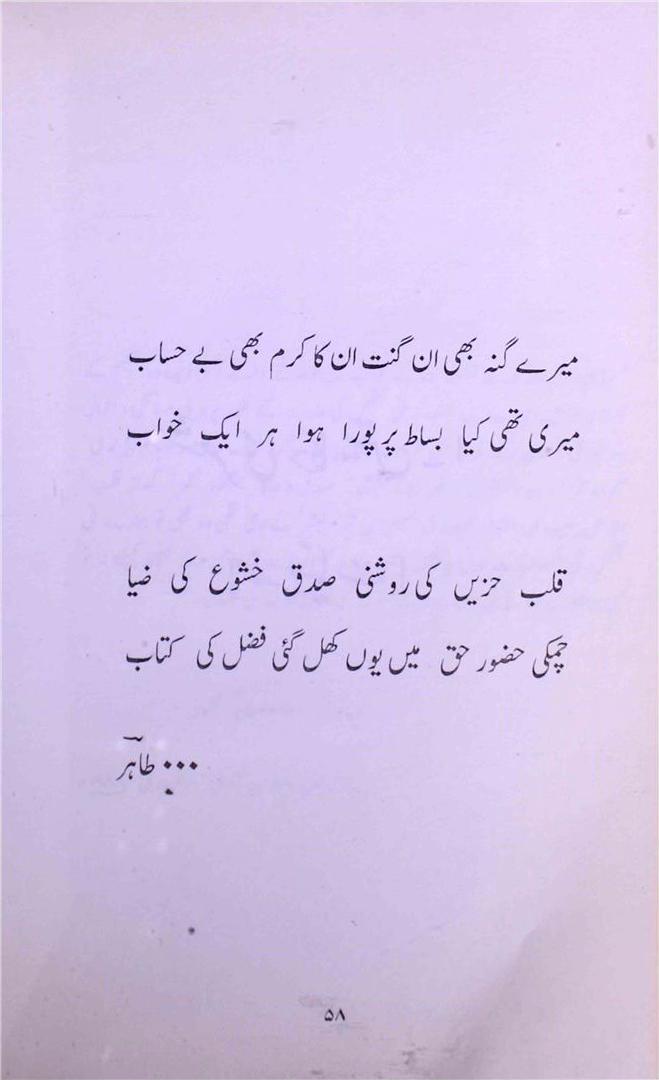 میرے گنہ بھی ان گنت ان کا کرم بھی بے حساب
میری تھی کیا بساط پر پورا ہوا ہر ایک خواب
قلب حزیں کی روشنی صدق خشوع کی ضیا
چمکی حضور حق میں یوں کھل گئی فضل کی کتاب
••• طاہرؔ
۵۸